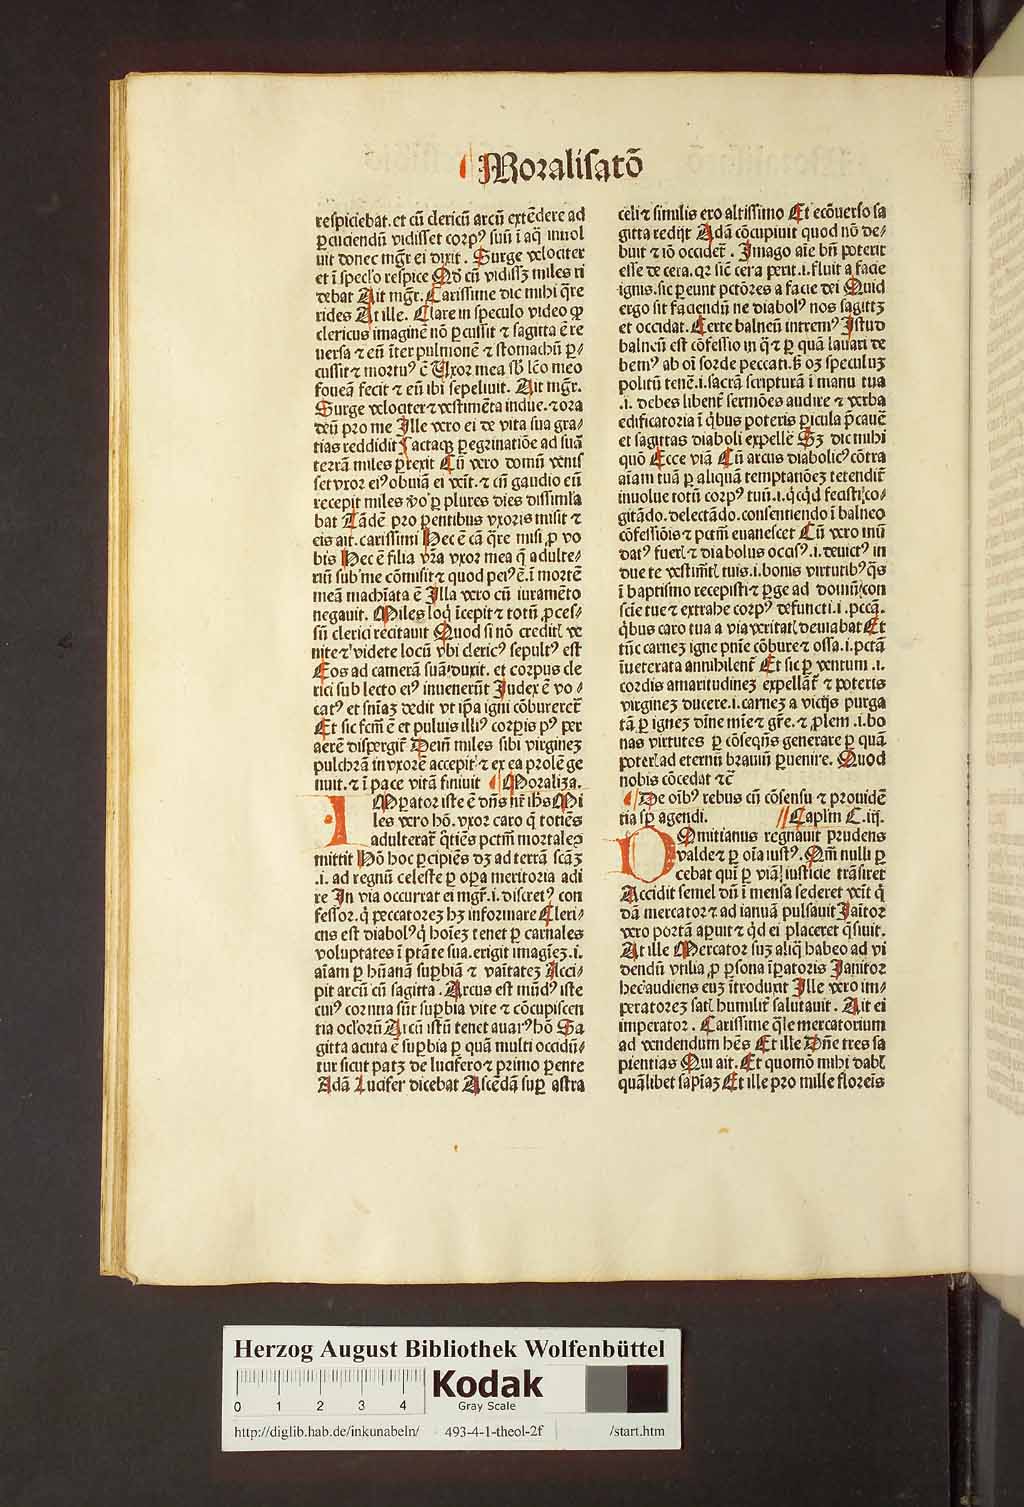 Moralisatō
respiciebat. et cū clericū arcū extēdere ad
ꝑcuciendū vidisset corpꝰ suū ī aq̄ inuol
uit donec mgr̄ ei dixit. Surge velociter
et ī speclo respice Qd̄ cū vidissꝫ miles ri
debat Ait mgr̄. Carissime dic mihi q̄re
rides At ille. Clare in speculo video ꝙ
clericus imaginē nō ꝑcussit ⁊ sagitta ē re
uersa ⁊ eū īter pulmonē ⁊ stomachū ꝑ-
cussit ⁊ mortuꝰ ē Uxor mea sb̄ lc̄o meo
foueā fecit ⁊ eū ibi sepeliuit. Ait mgr̄.
Surge velociter ⁊ vestimēta indue. ⁊ ora
deū pro me Ille vero ei de vita sua gra-
tias reddidit Factaqꝫ ꝑegrinatiōe ad suā
terrā miles ꝑrexit Cū vero domū venis
set vxor eiꝰ obuiā ei veīt. ⁊ cū gaudio eū
recepit miles v̄o ꝑ plures dies dissimła
bat Tādē pro ꝑentibus vxoris misit ⁊
eis ait. carissimi Hec ē cā q̄re misi ꝓ vo
bis Hec ē filia vr̄a vxor mea q̄ adulte-
riū sub me cōmisit ⁊ quod peiꝰ ē. ī mortē
meā machīata ē Illa vero cū iuramēto
negauit. Miles loq̄ īcepit ⁊ totū ꝓces-
sū clerici recitauit Quod si nō creditꝭ ve
nite ⁊ videte locū vbi clericꝰ sepultꝰ est
Eos ad camerā suā duxit. et corpus cle
rici sub lecto eiꝰ inuenerūt Iudex ē vo-
catꝰ et snīaꝫ dedit vt ip̄a igni cōburerēt
Et sic fcm̄ ē et puluis illiꝰ corpis pꝰ per
aerē dispergit̄ Dein̄ miles sibi virgineꝫ
pulchrā in vxorē accepit ⁊ ex ea prolē ge
nuit. ⁊ ī pace vitā finiuit Moraliza.
IMꝑator iste ē dn̄s nr̄ ih̄s Mi
les vero hō. vxor caro q̄ totiēs
adulterat̄ q̄tiēs pctm̄ mortaleꝫ
mittit Hō hoc ꝑcipiēs dꝫ ad terrā scāꝫ
.i. ad regnū celeste ꝑ oꝑa meritoria adi
re In via occurrat ei mgr̄ .i. discretꝰ con
fessor. q̇ peccatoreꝫ hꝫ informare Cleri-
cus est diabolꝰ q̇ hoīeꝫ tenet ꝑ carnales
voluptates ī ptāte sua. erigit imagīeꝫ .i.
aīam ꝑ hūanā suꝑbiā ⁊ vaītateꝫ Acci-
pit arcū cū sagitta. Arcus est mūdꝰ iste
cuiꝰ cornua sūt suꝑbia vite ⁊ cōcupiscen
tia oclorū Arcū istū tenet auarꝰ hō Sa
gitta acuta ē suꝑbia ꝑ quā multi occidū-
tur sicut patꝫ de lucifero ⁊ primo ꝑente
Adā Lucifer dicebat Ascēdā suꝑ astra
celi ⁊ similis ero altissimo Et ecōuerso sa
gitta redijt Adā cōcupiuit quod nō de-
buit ⁊ iō occidet̄. Imago aīe bn̄ poterit
esse de cera. qꝛ sic̄ cera perit .i. fluit a facie
ignis. sic ꝑeunt pctōres a facie dei Quid
ergo sit faciendū ne diabolꝰ nos sagittꝫ
et occidat. Certe balneū intremꝰ Istud
balneū est cōfessio in q̄ ⁊ ꝑ quā lauari de
bemꝰ ab oī sorde peccati. sꝫ oꝫ speculuꝫ
politū tenē .i. sacrā scripturā ī manu tua
.i. debes libent̄ sermōes audire ⁊ verba
edificatoria ī q̇bus poteris ꝑicula p̄cauē
et sagittas diaboli expellē Sꝫ dic mihi
quō Ecce viā Cū arcus diabolicꝰ cōtra
aīam tuā ꝑ aliquā temptatiōeꝫ tetendit̄
inuolue totū corpꝰ tuū .i. q̇cq̇d fecisti co-
gitādo. delectādo. consentiendo ī balneo
cōfessiōis ⁊ pctm̄ euanescet Cū vero mū
datꝰ fuerꝭ ⁊ diabolus occisꝰ .i. deuictꝰ in
due te vestimētꝭ tuis .i. bonis virtutibꝰ q̄s
ī baptismo recepisti ⁊ ꝑge ad domū con
scīe tue ⁊ extrahe corpꝰ defuncti .i. pccā.
q̇bus caro tua a via veritatꝭ deuiabat Et
tūc carneꝫ igne pnīe cōbure ⁊ ossa .i. pctā
īueterata annihilent̄ Et sic ꝑ ventum .i.
cordis amaritudineꝫ expellāt̄ ⁊ poteris
virgineꝫ ducere .i. carneꝫ a vicijs purga
tā ꝑ igneꝫ dīne mīe ⁊ gr̄e. ⁊ ꝓlem .i. bo
nas virtutes ꝑ cōseqn̄s generare ꝑ quā
poterꝭ ad eternū brauiū ꝑuenire. Quod
nobis cōcedat ⁊c̄
De oībꝰ rebus cū cōsensu ⁊ prouidē
tia sꝑ agendi. Caplm C. iij.
DOmitianus regnauit prudens
valde ⁊ ꝑ oīa iustꝰ. Qm̄ nulli ꝑ
cebat qui ꝑ viā iusticie trāsiret
Accidit semel dū ī mensa sederet veīt q̇
dā mercator ⁊ ad ianuā pulsauit Ianitor
vero portā aꝑuit ⁊ qd̄ ei placeret q̄siuit.
At ille Mercator suꝫ aliq̄ habeo ad vē
dendū vtilia ꝓ ꝑsona īꝑatoris Ianitor
hec audiens euꝫ ītroduxit Ille vero im-
peratoreꝫ satꝭ humilit̄ salutauit. Ait ei
imperator. Carissime q̄le mercatorium
ad vendendum hēs Et ille Dn̄e tres sa
pientias Qui ait. Et quomō mihi dabꝭ
quālibet sapīaꝫ Et ille pro mille florēis
Herzog August Bibliothek Wolfenbüttel
0 1 2 3 4
Kodak
Gray Scale
http://diglib.hab.de/inkunabeln/ 493-4-1-theol-2f /start.htm